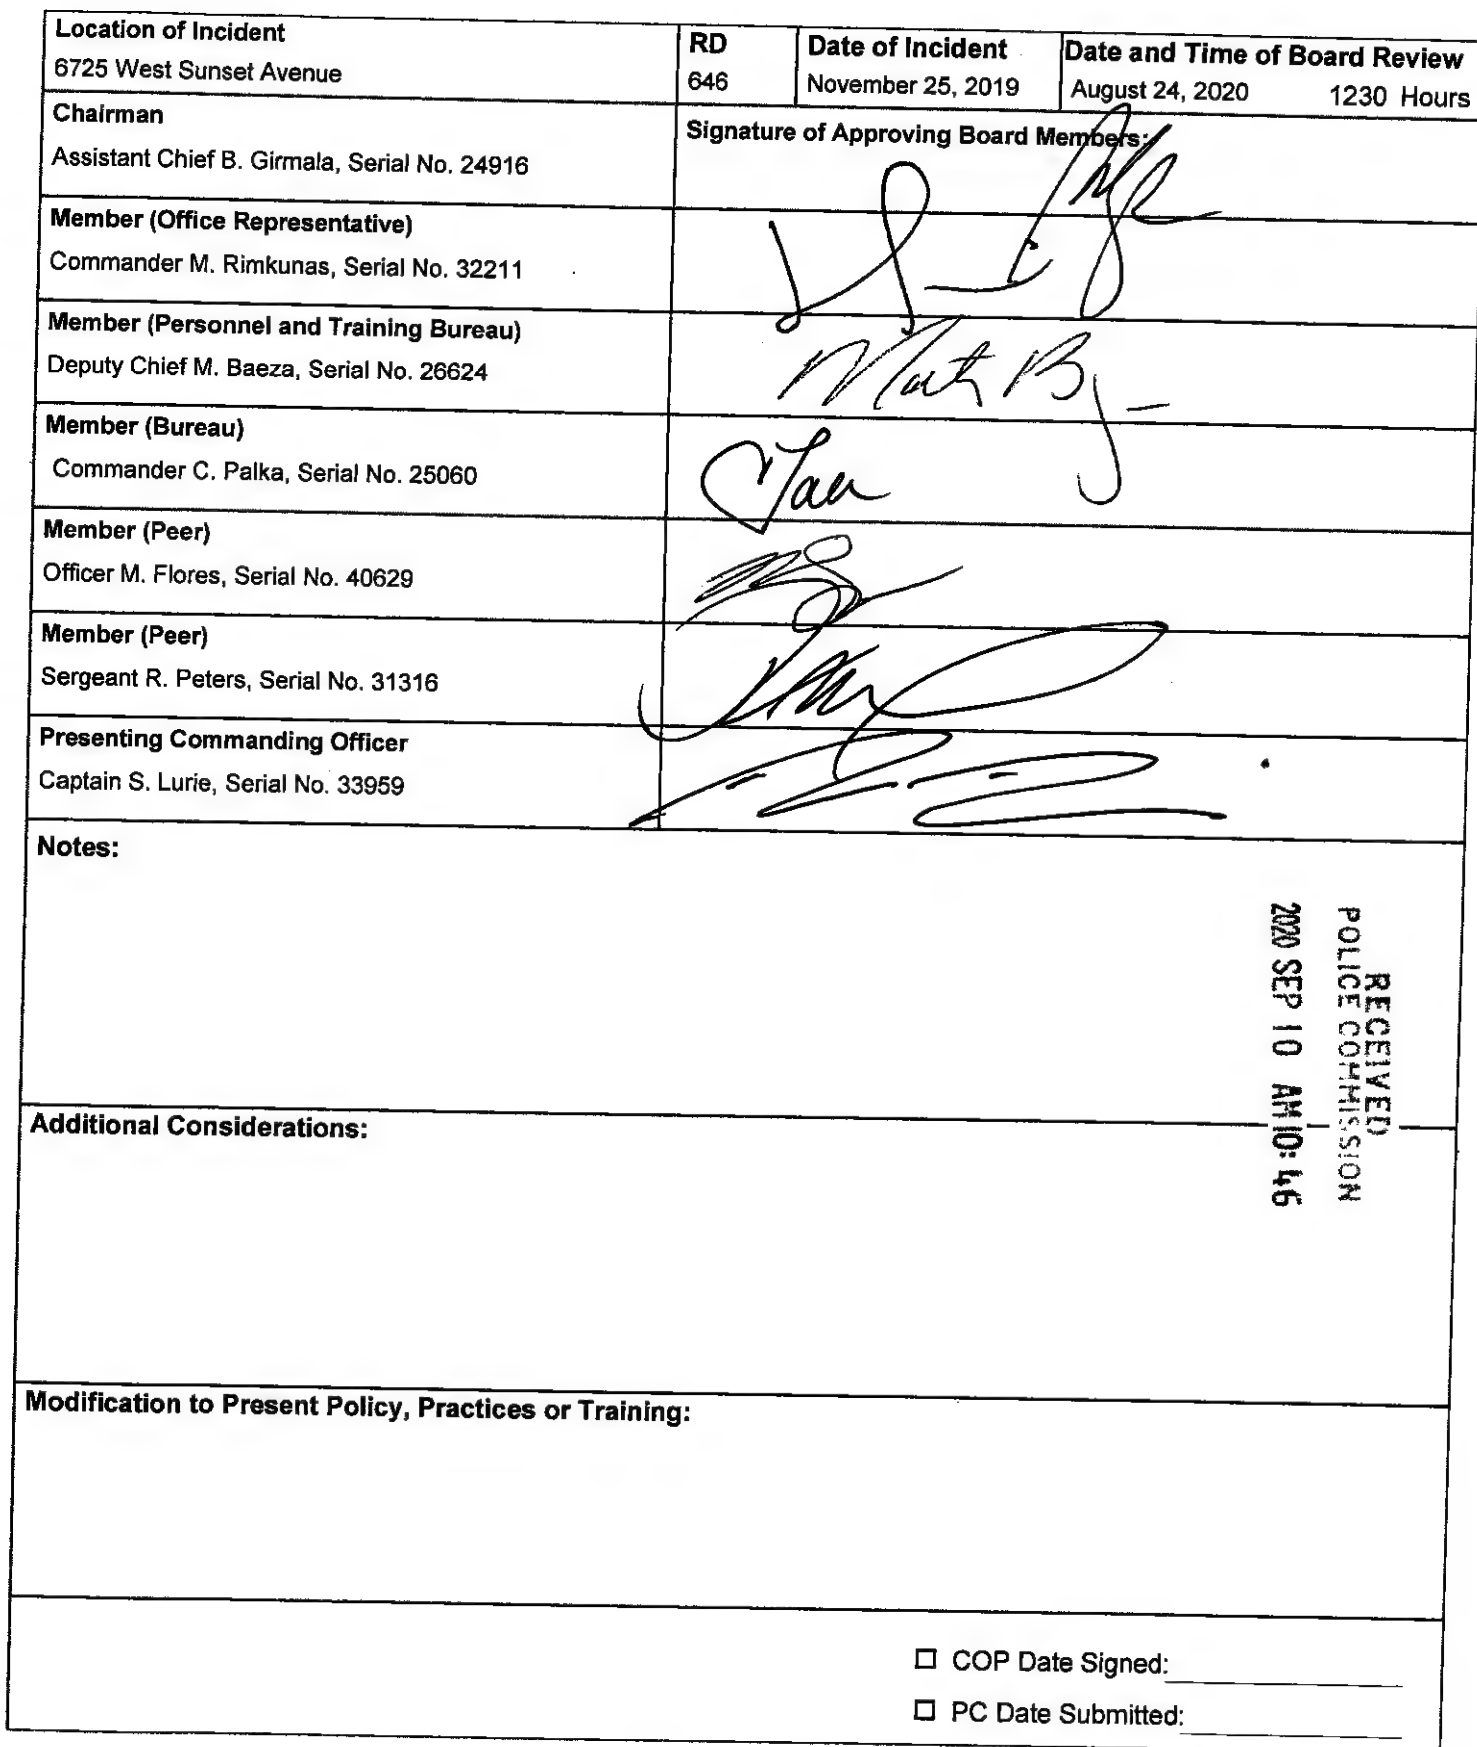 Location of Incident
6725 West Sunset Avenue
RD
646
Date of Incident
November 25, 2019
Date and Time of Board Review
August 24, 2020 1230 Hours
Chairman
Assistant Chief B. Girmala, Serial No. 24916
Signature of Approving Board Members:
Member (Office Representative)
Commander M. Rimkunas, Serial No. 32211
Member (Personnel and Training Bureau)
Deputy Chief M. Baeza, Serial No. 26624
Member (Bureau)
Commander C. Palka, Serial No. 25060
Member (Peer)
Officer M. Flores, Serial No. 40629
Member (Peer)
Sergeant R. Peters, Serial No. 31316
Presenting Commanding Officer
Captain S. Lurie, Serial No. 33959
Notes:
RECEIVED
POLICE COMMISSION
2020 SEP 10 AM 10:46
Additional Considerations:
Modification to Present Policy, Practices or Training:
COP Date Signed:
PC Date Submitted: